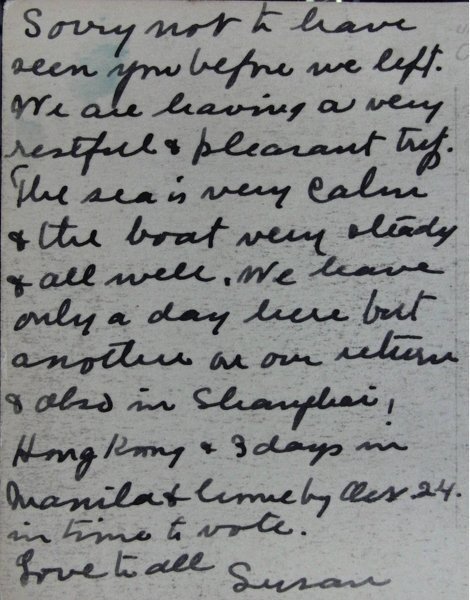 Sorry not to have
seen you before we left.
We are having a very
restful & pleasant trip.
The sea is very calm
& the boat very steady
& all well. We have
only a day here but
another on our return
& also in Shanghai,
Hong Kong & 3 days in
Manila & home by Oct. 24.
in time to vote.
Love to all
Susan